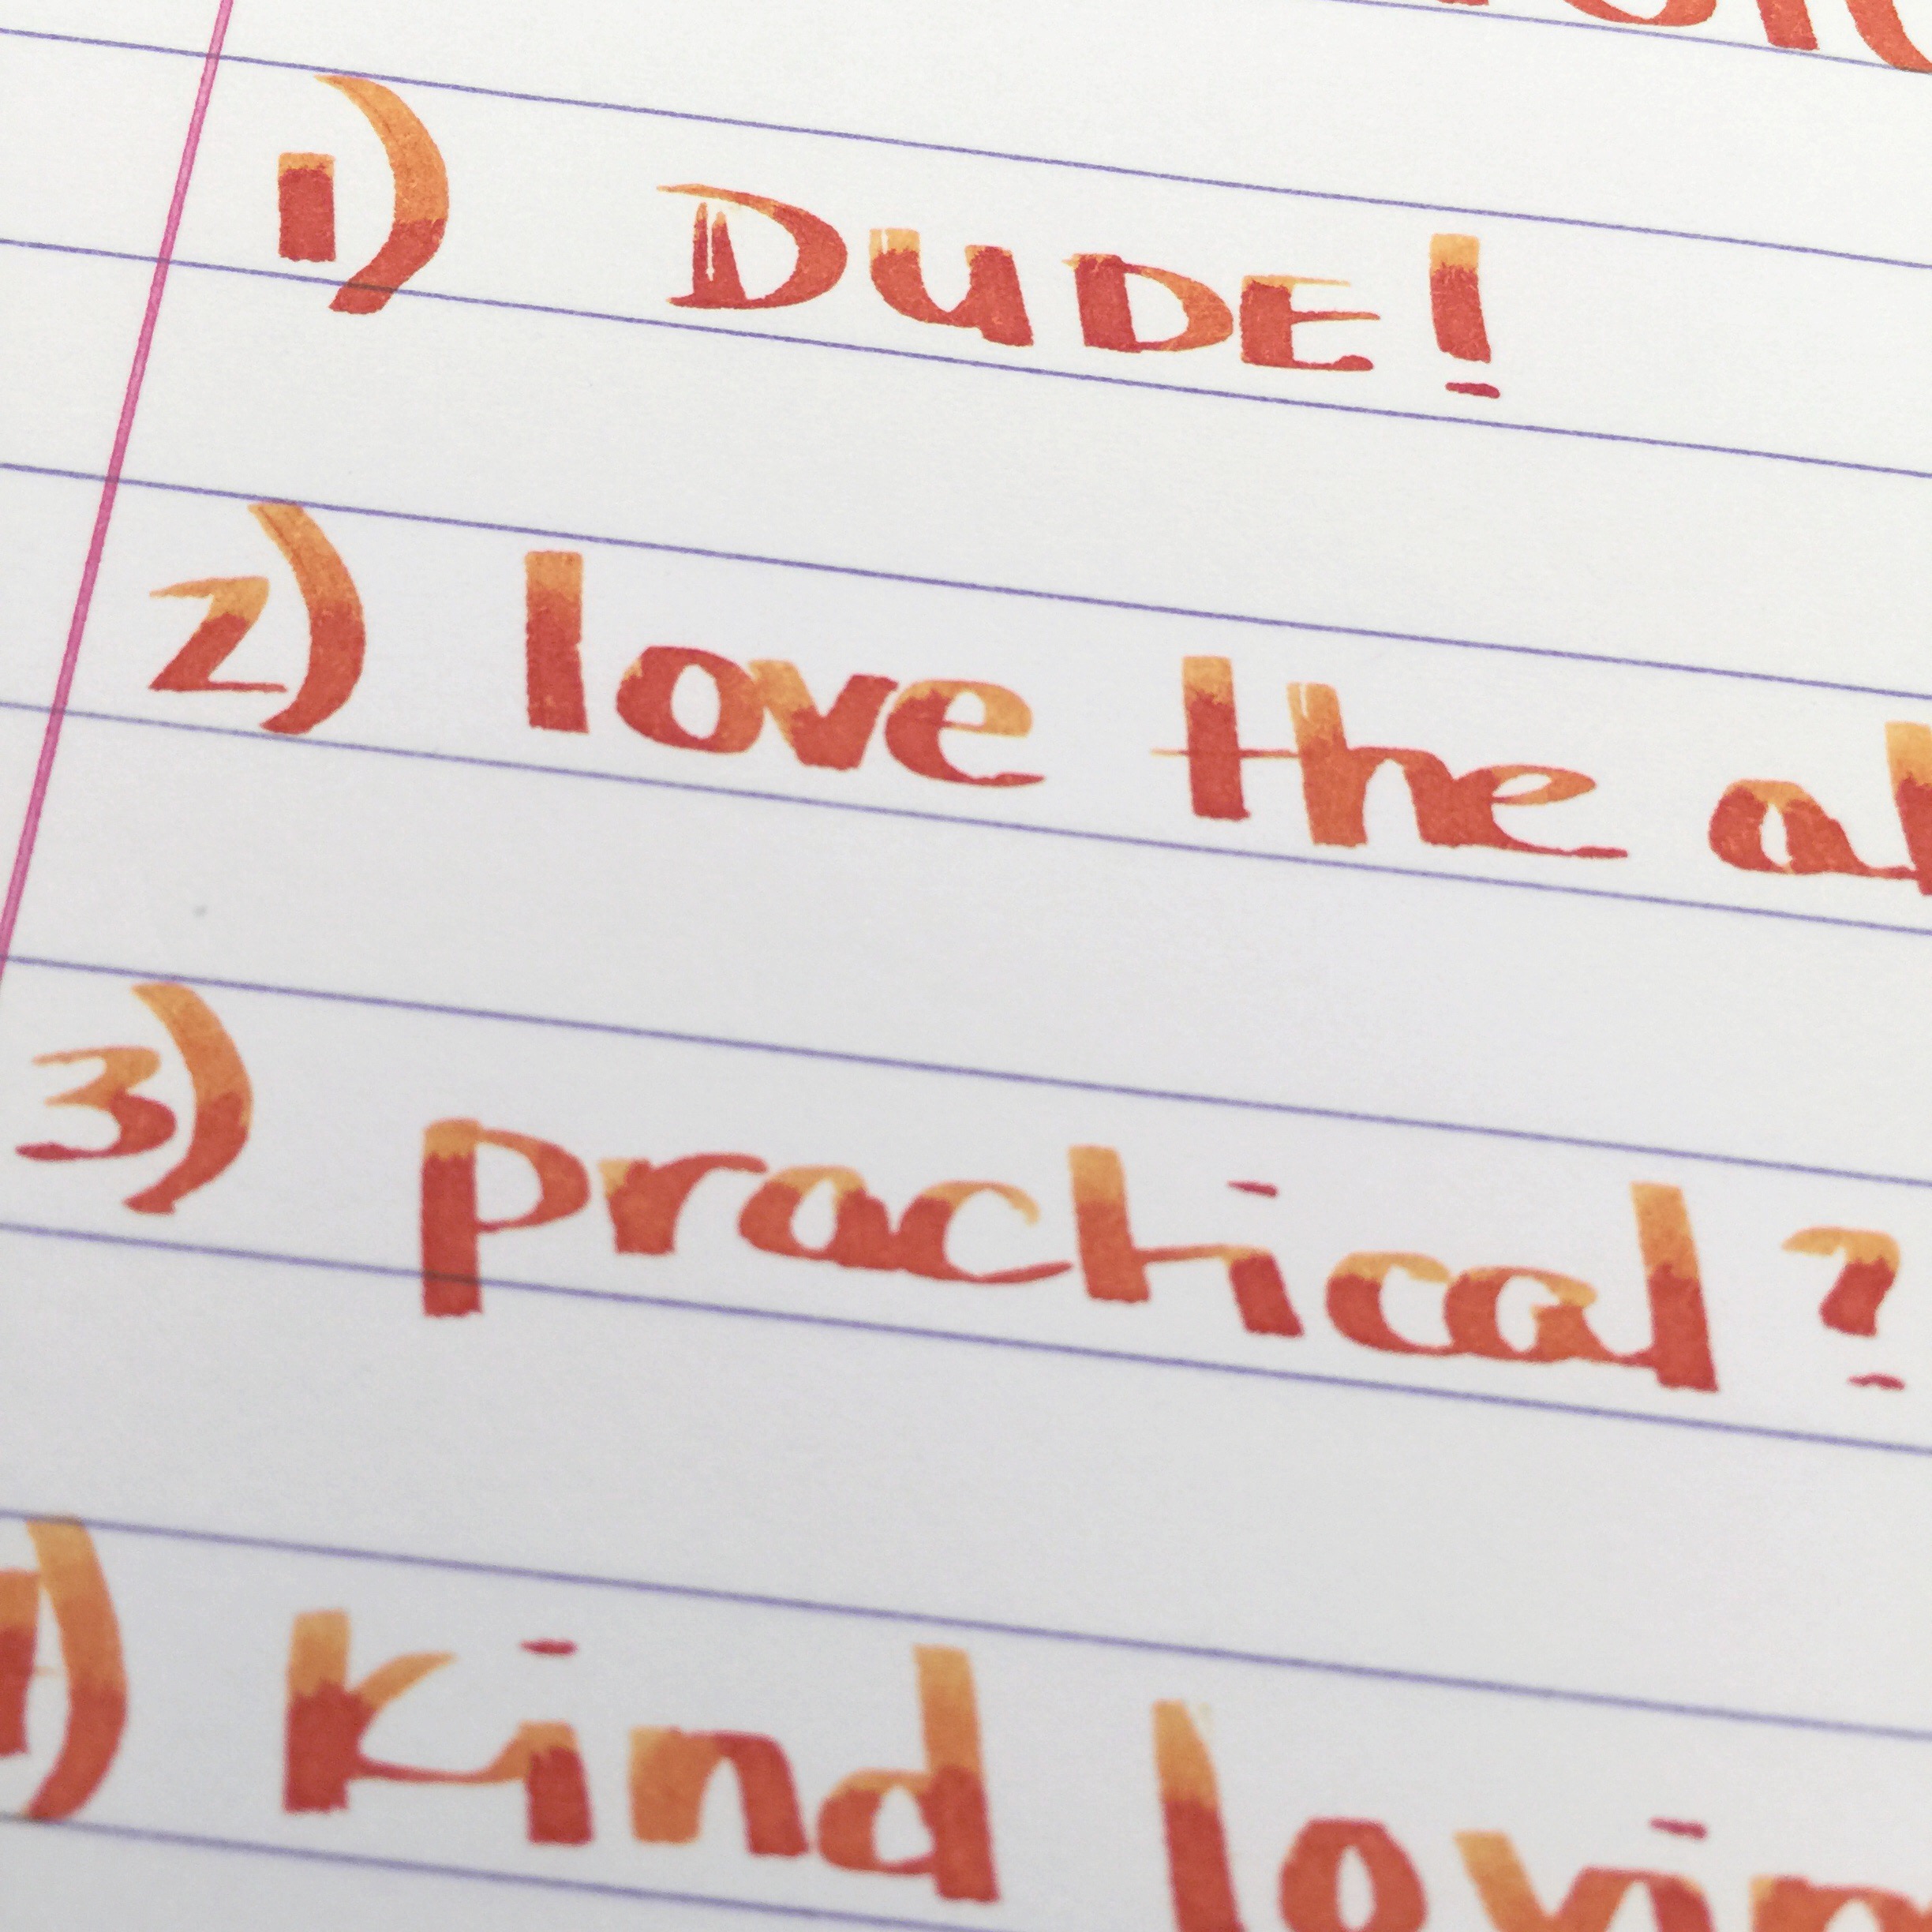 1) DUDE!
2) love the
3) practical?
4) Kind